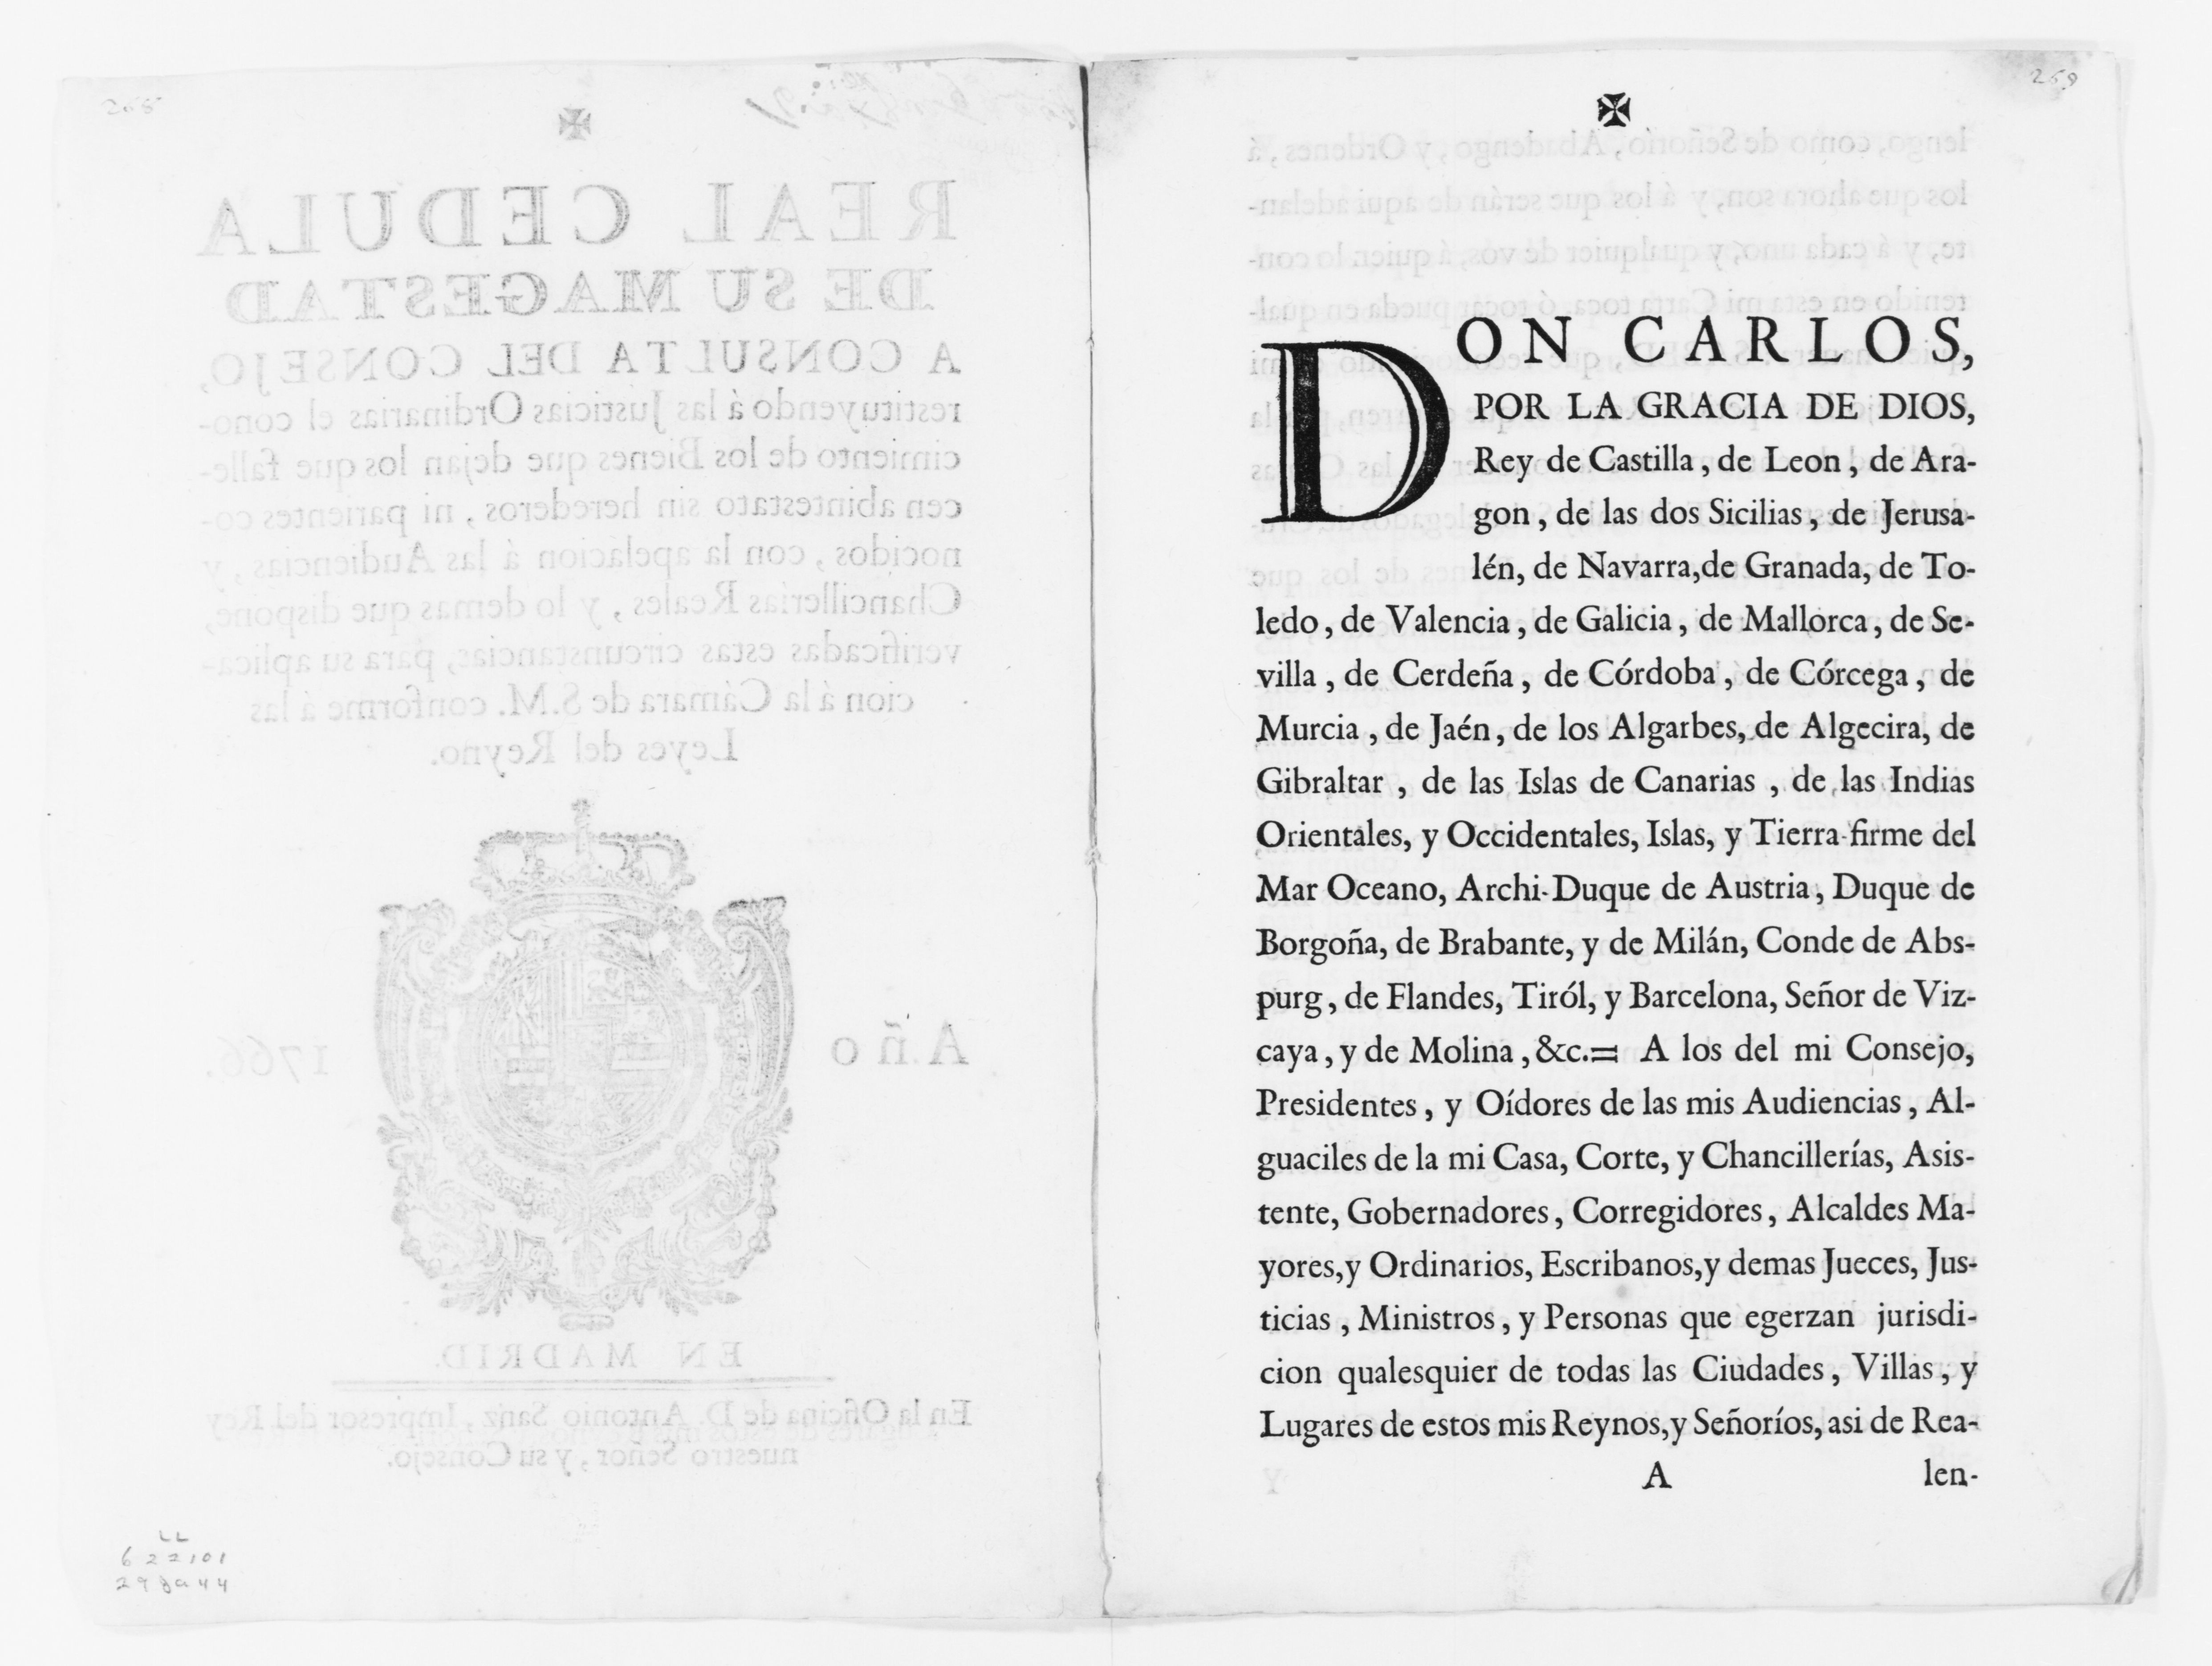 REAL CEDULA
DE SU MAGESTAD
A CONSULTA DEL CONSEJO,
restituyendo á las Justicias Ordinarias el cono-
cimiento de los Bienes que dejan los que falle-
cen abintestato sin herederos, ni parientes co-
nocidos, con la apelacion á las Audiencias, y
Chancillerías Reales, y lo demas que dispone,
verificadas estas circunstancias, para su aplica-
cion á la Cámara de S.M. conforme á las
Leyes del Reyno.
Año 1766.
EN MADRID.
En la Oficina de D. Antonio Sanz, Impresor del Rey
nuestro Señor, y su Consejo.
LL
622101
29 Ja 44
269
DON CARLOS,
POR LA GRACIA DE DIOS,
Rey de Castilla, de Leon, de Ara-
gon, de las dos Sicilias, de Jerusa-
lén, de Navarra, de Granada, de To-
ledo, de Valencia, de Galicia, de Mallorca, de Se-
villa, de Cerdeña, de Córdoba, de Córcega, de
Murcia, de Jaén, de los Algarbes, de Algecira, de
Gibraltar, de las Islas de Canarias, de las Indias
Orientales, y Occidentales, Islas, y Tierra-firme del
Mar Oceano, Archi-Duque de Austria, Duque de
Borgoña, de Brabante, y de Milán, Conde de Abs-
purg, de Flandes, Tiról, y Barcelona, Señor de Viz-
caya, y de Molina, &c.= A los del mi Consejo,
Presidentes, y Oídores de las mis Audiencias, Al-
guaciles de la mi Casa, Corte, y Chancillerías, Asis-
tente, Gobernadores, Corregidores, Alcaldes Ma-
yores, y Ordinarios, Escribanos, y demas Jueces, Jus-
ticias, Ministros, y Personas que egerzan jurisdi-
cion qualesquier de todas las Ciudades, Villas, y
Lugares de estos mis Reynos, y Señoríos, asi de Rea-
A len-